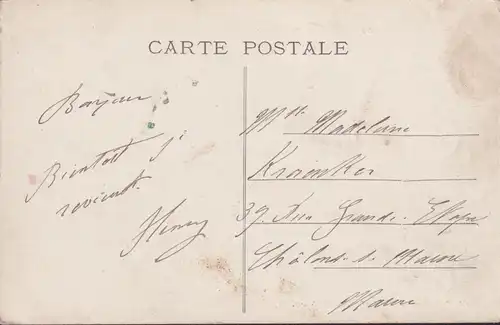 CARTE POSTALE
Bonjour
Bientôt je
revient.
Henry
Mlle Madelaine
39, Rue Grande Etape
Châlons-s-Marne
Marne